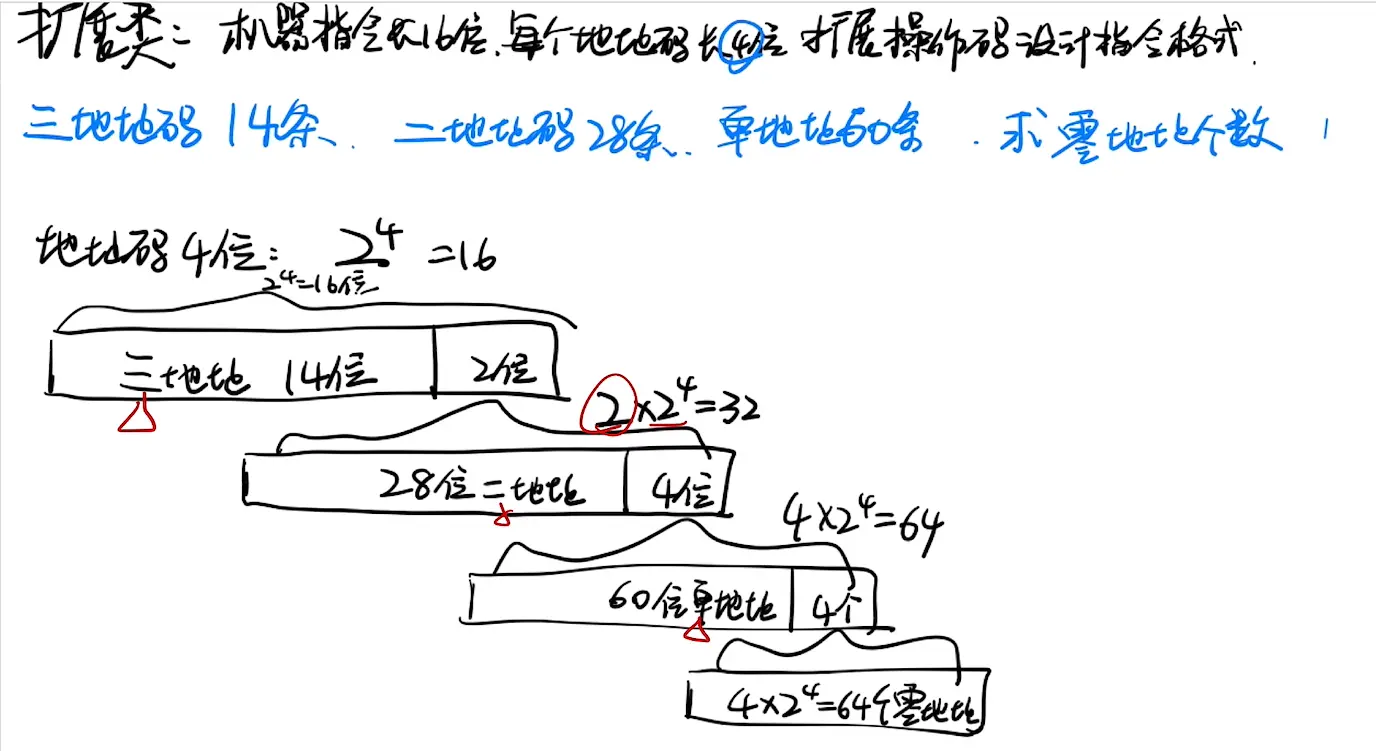 扩展类：机器指令长16位，每个地址码长4位 扩展操作码设计指令格式.
三地址码14条、二地址码28条、单地址60条．求零地址个数
地址码4位： 2⁴ =16
2⁴=16位
三地址 14位 2位
2×2⁴=32
28位二地址 4位
4×2⁴=64
60位单地址 4个
4×2⁴=64个零地址